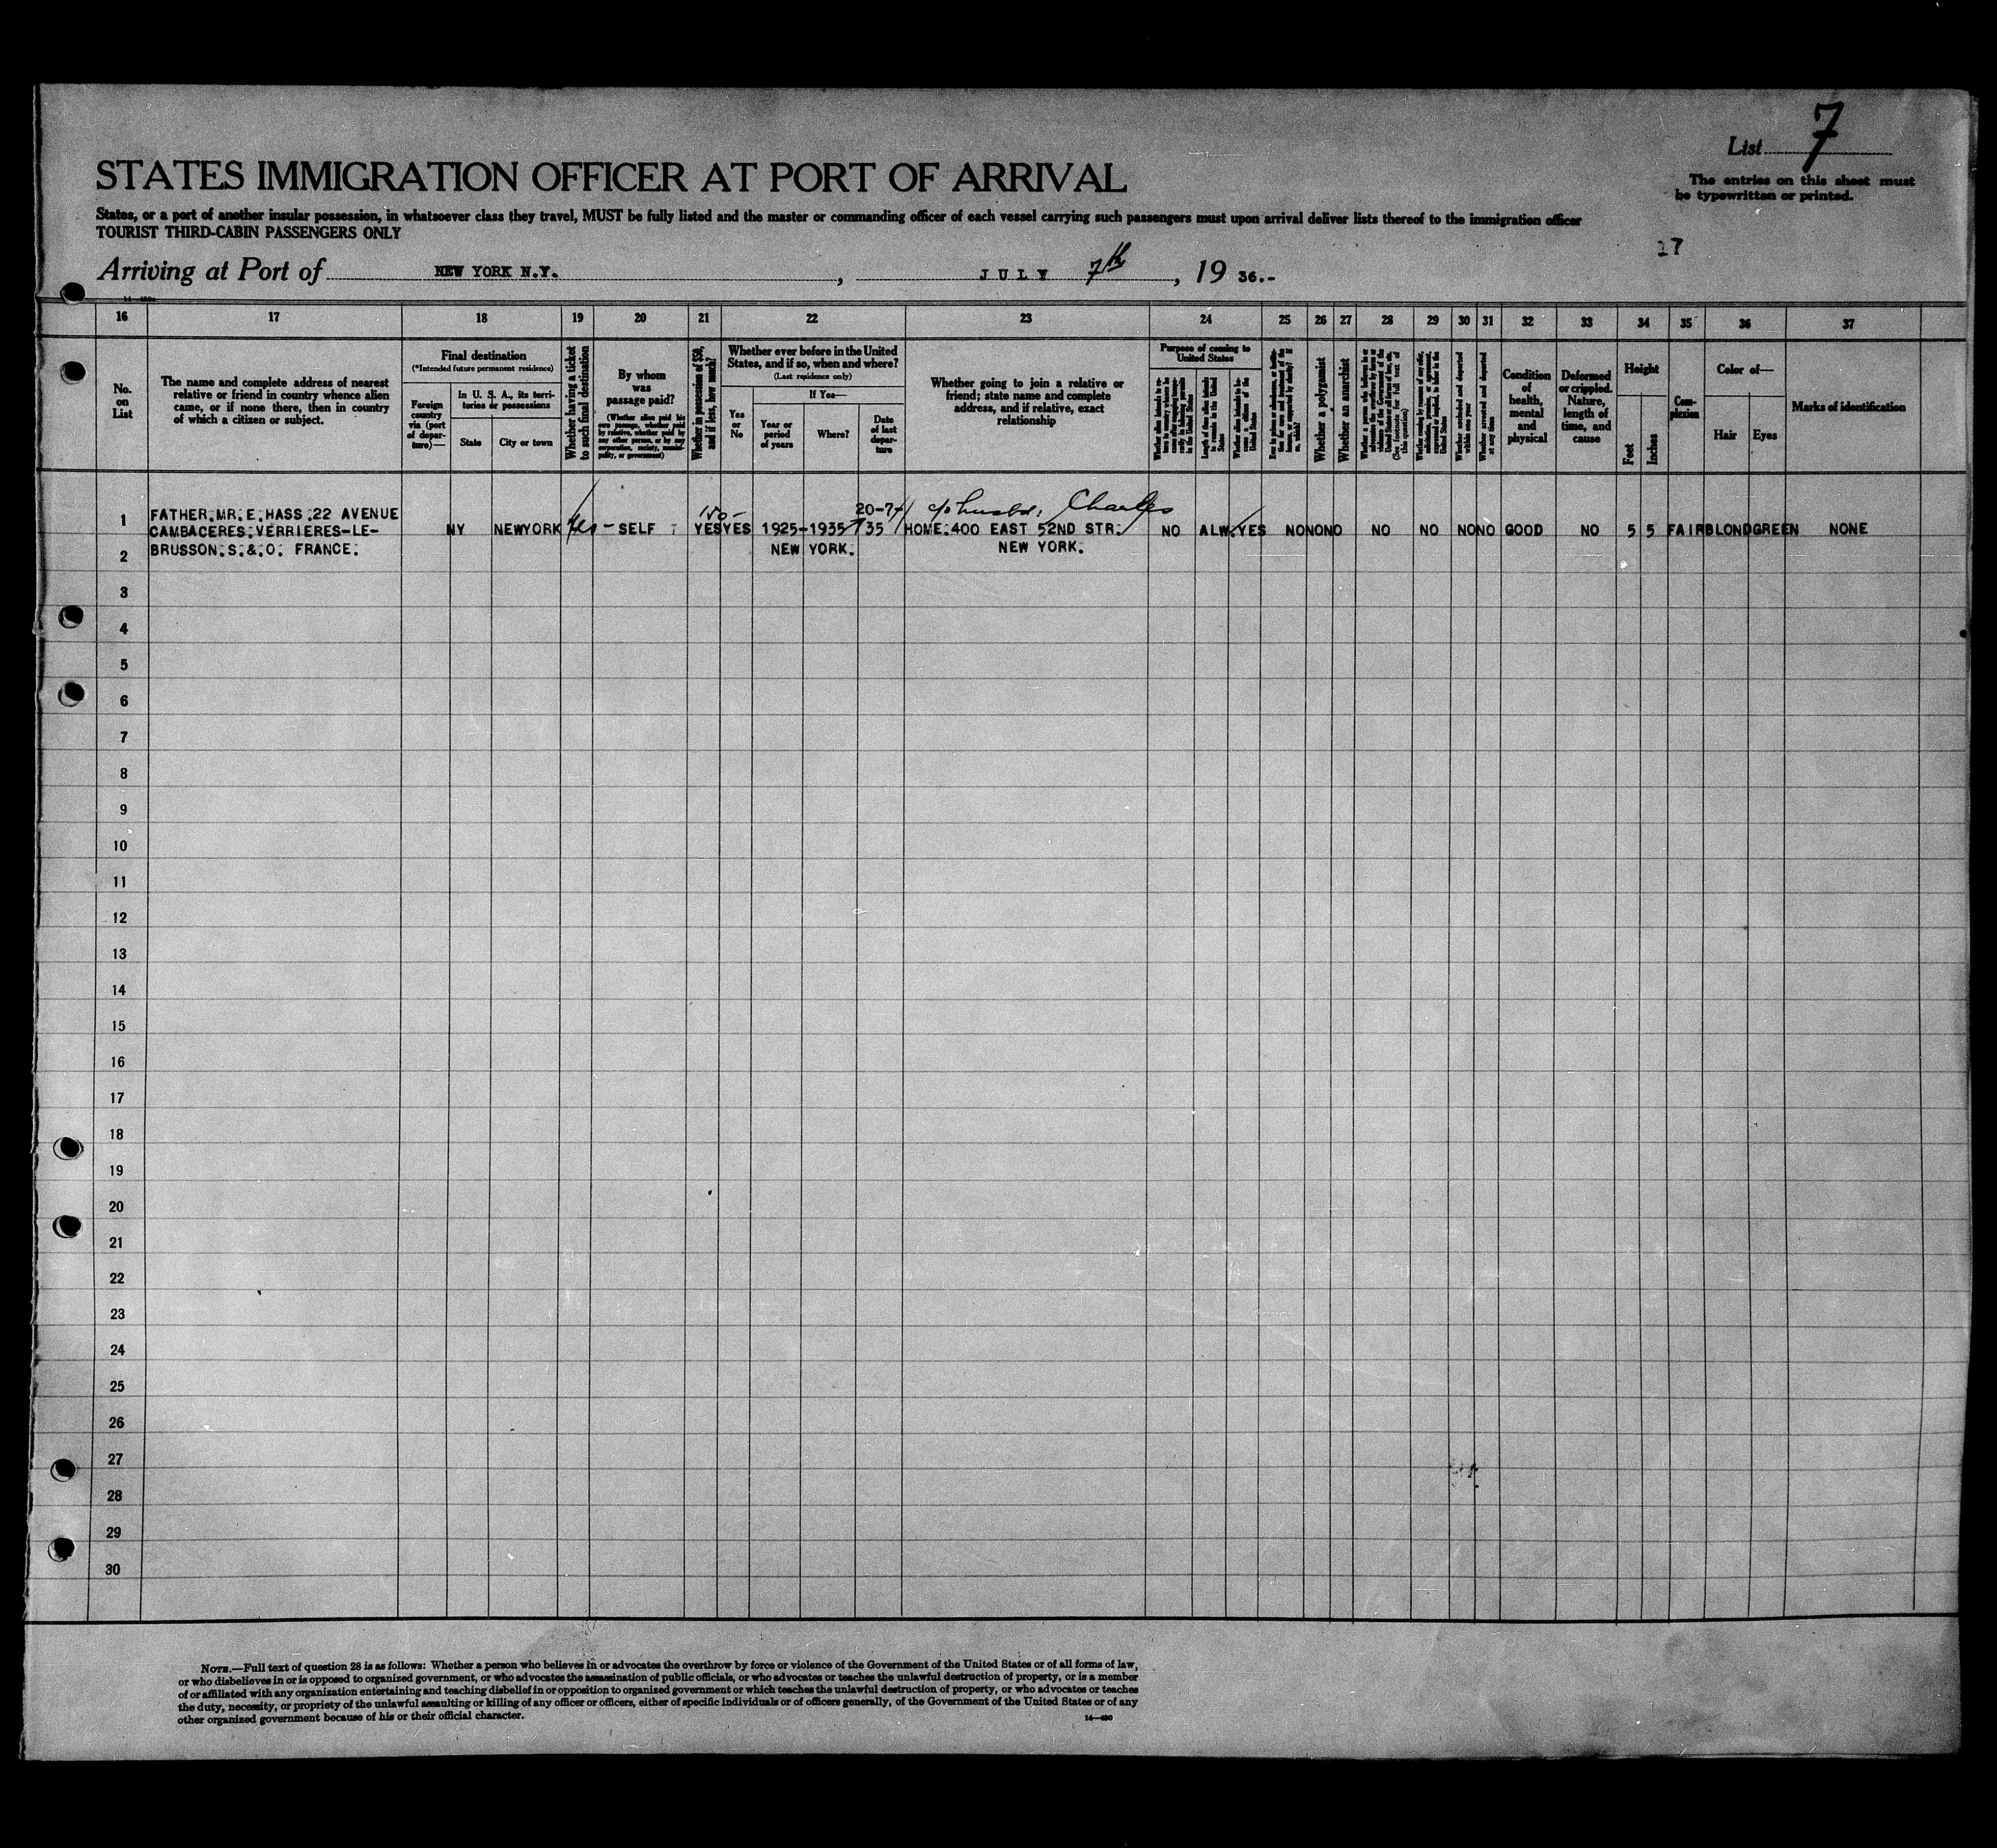 List 7
STATES IMMIGRATION OFFICER AT PORT OF ARRIVAL
The entries on this sheet must
be typewritten or printed.
States, or a port of another insular possession, in whatsoever class they travel, MUST be fully listed and the master or commanding officer of each vessel carrying such passengers must upon arrival deliver lists thereof to the immigration officer
TOURIST THIRD-CABIN PASSENGERS ONLY
17
Arriving at Port of NEW YORK N.Y. , JULY 7th , 19 36.-
16 17 18 19 20 21 22 23 24 25 26 27 28 29 30 31 32 33 34 35 36 37
No. on List
The name and complete address of nearest
relative or friend in country whence alien
came, or if none there, then in country
of which a citizen or subject.
Final destination
(*Intended future permanent residence)
Foreign country via (port of departure)—
In U. S. A., its territories or possessions
State
City or town
Whether having a ticket to such final destination
By whom was passage paid?
(Whether alien paid his own passage, whether paid by relative, whether paid by any other person, or by any corporation, society, municipality, or government)
Whether in possession of $50, and if less, how much?
Whether ever before in the United States, and if so, when and where?
(Last residence only)
Yes or No
If Yes—
Year or period of years
Where?
Date of last departure
Whether going to join a relative or
friend; state name and complete
address, and if relative, exact
relationship
Purpose of coming to United States
Length of time alien intends to remain in the United States
Whether alien intends to become a citizen of the United States
Whether a polygamist
Whether an anarchist
(See footnote for full text of this question)
Whether arrested and deported within one year
Whether arrested and deported at any time
Condition of health, mental and physical
Deformed or crippled. Nature, length of time, and cause
Height
Feet
Inches
Complexion
Color of—
Hair
Eyes
Marks of identification
150- 20-7- c/o husbd; Charles
1 FATHER.MR.E.HASS.22 AVENUE
CAMBACERES.VERRIERES-LE- NY NEWYORK Yes - SELF YES YES 1925-1935 35 HOME.400 EAST 52ND STR. NO ALW. YES NO NO NO NO NO NO NO GOOD NO 5 5 FAIR BLOND GREEN NONE
2 BRUSSON.S.&.O. FRANCE. NEW YORK. NEW YORK.
3
4
5
6
7
8
9
10
11
12
13
14
15
16
17
18
19
20
21
22
23
24
25
26
27
28
29
30
NOTE.—Full text of question 28 is as follows: Whether a person who believes in or advocates the overthrow by force or violence of the Government of the United States or of all forms of law,
or who disbelieves in or is opposed to organized government, or who advocates the assassination of public officials, or who advocates or teaches the unlawful destruction of property, or is a member
of or affiliated with any organization entertaining and teaching disbelief in or opposition to organized government or which teaches the unlawful destruction of property, or who advocates or teaches
the duty, necessity, or propriety of the unlawful assaulting or killing of any officer or officers, either of specific individuals or of officers generally, of the Government of the United States or of any
other organized government because of his or their official character.
14—480